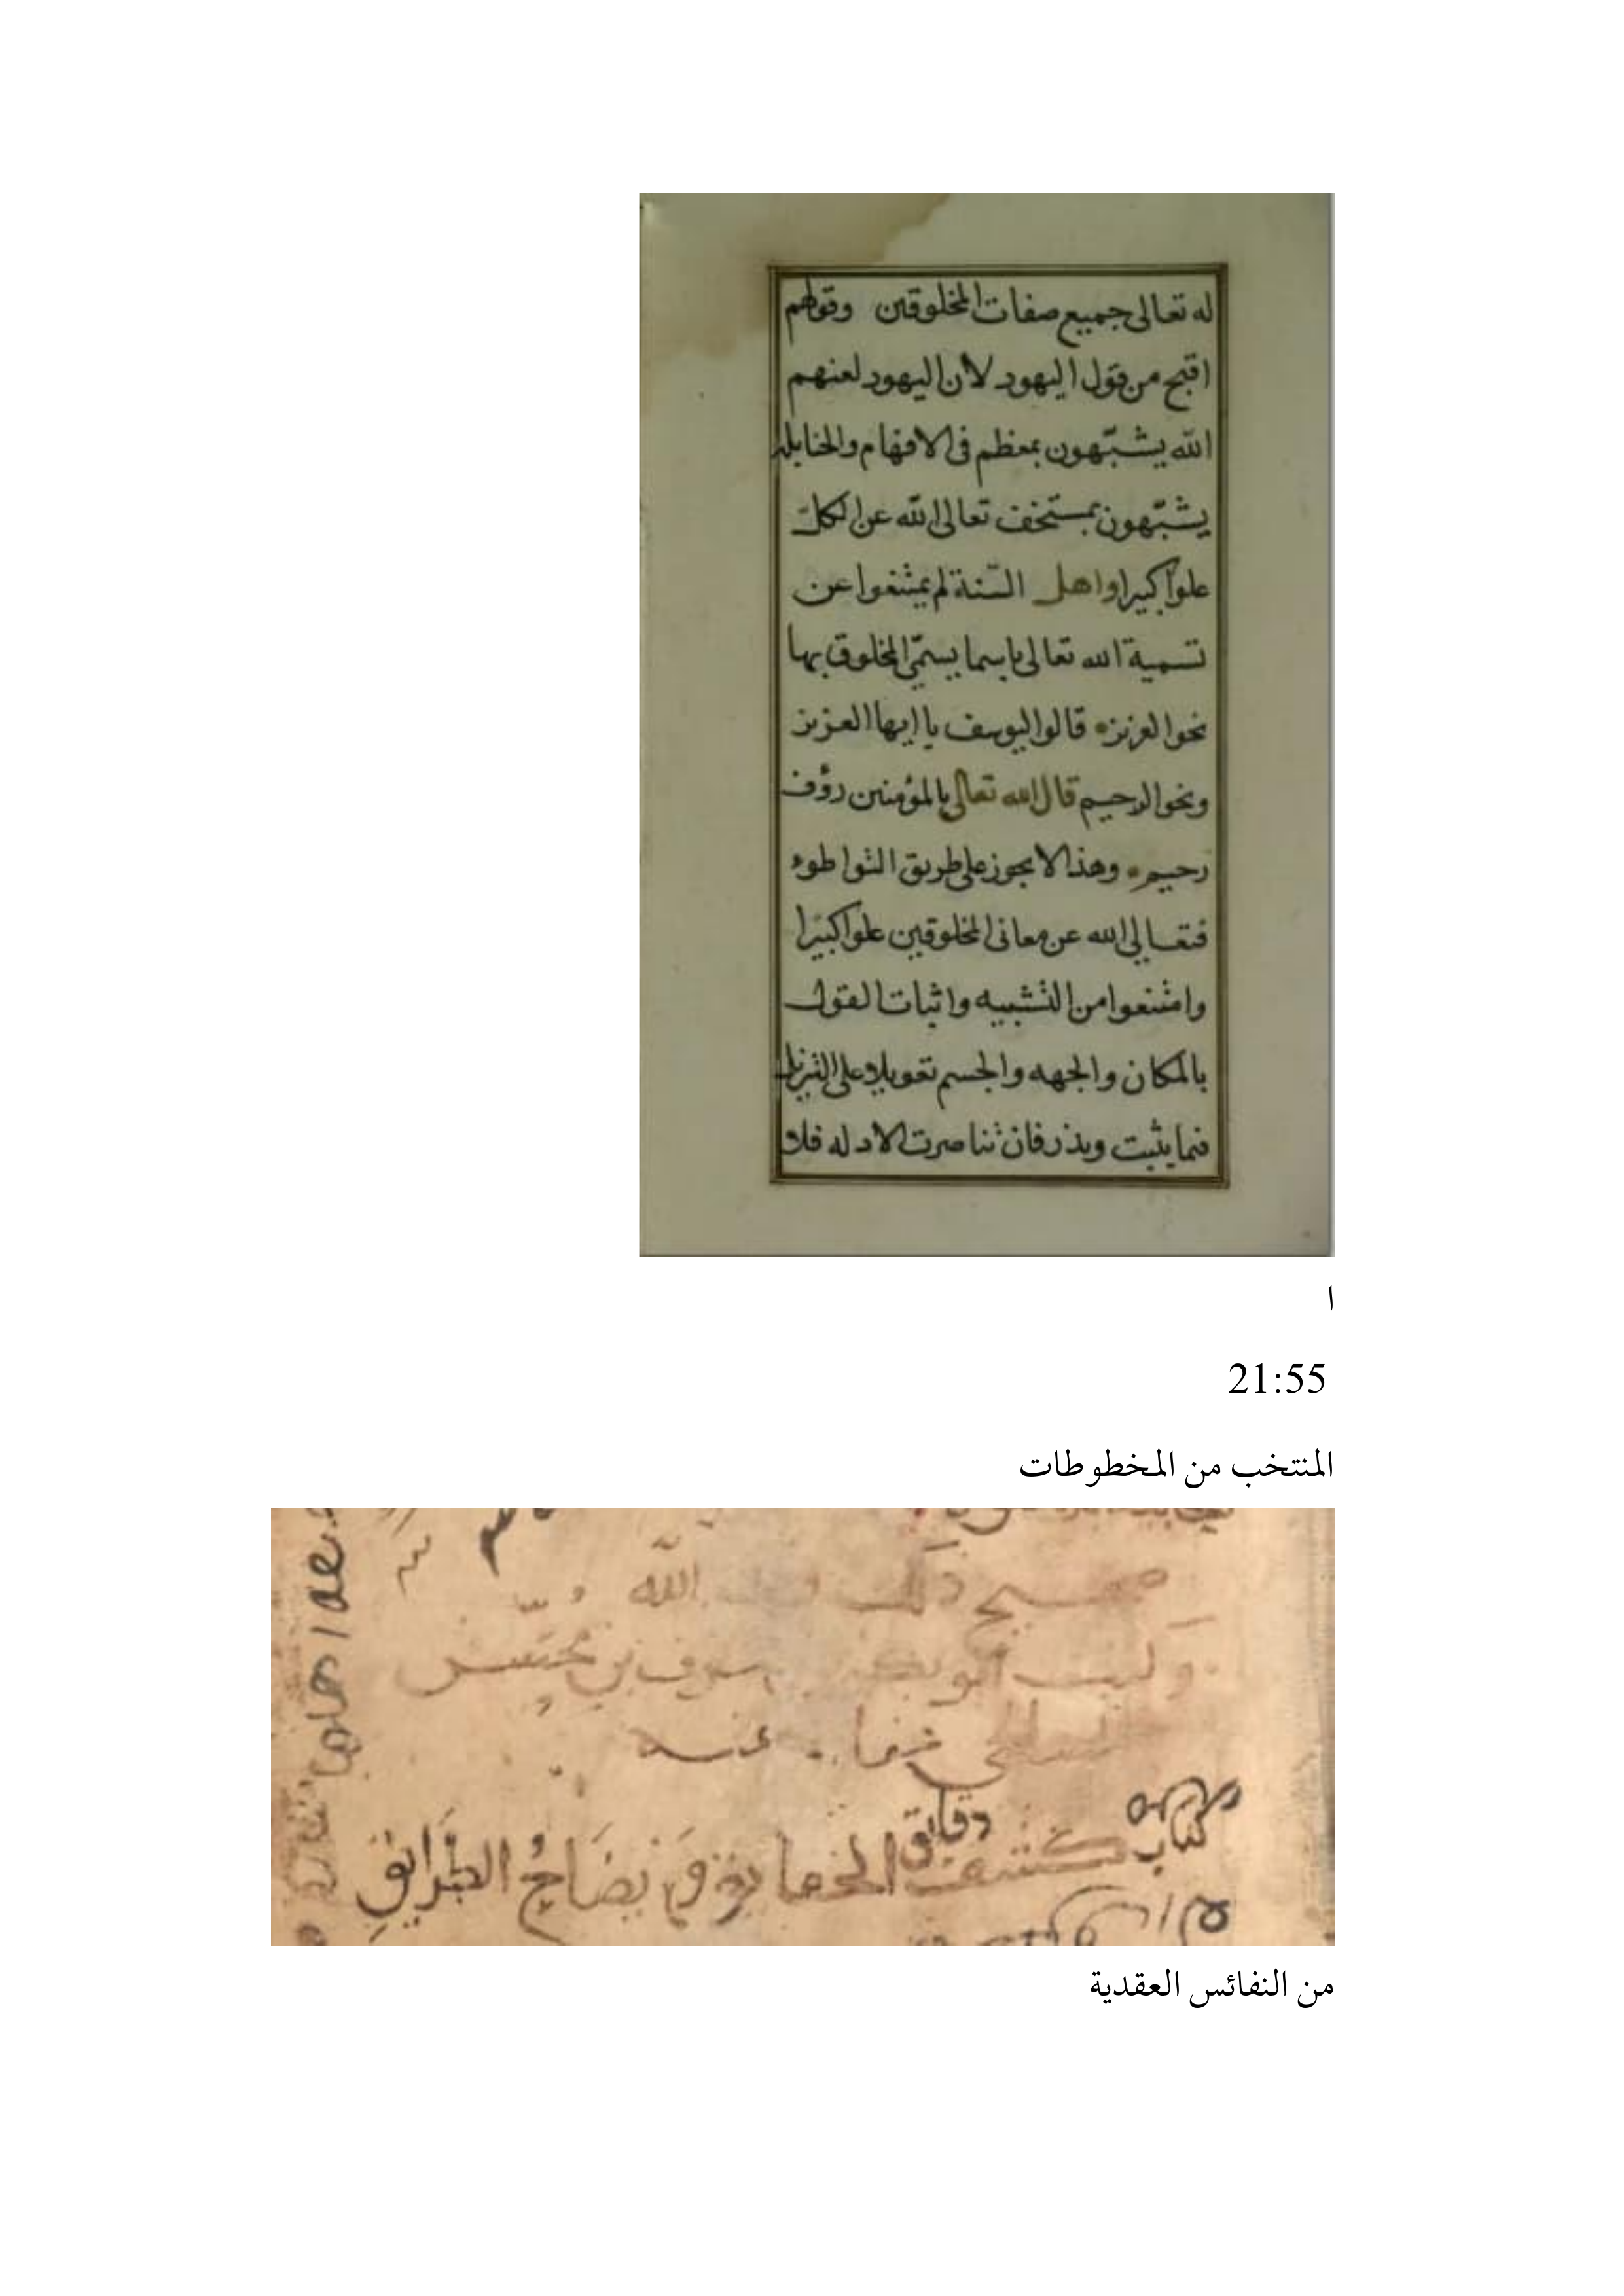 له تعالى جميع صفات المخلوقين وقولهم
اقبح من قول اليهود لان اليهود لعنهم
الله يشبّهون بمعظم فى الافهام والحنابله
يشبّهون بمستخف تعالى الله عن الكلّ
علوا كبيرا واهل السّنة لم يمتنعوا عن
تسمية الله تعالى باسما يسمّى المخلوق بها
نحو العزيز قالوا ليوسف يا ايها العزيز
ونحو الرحيم قال الله تعالى بالمؤمنين رؤف
رحيم وهذا لا يجوز على طريق التواطوء
فتعالى الله عن معانى المخلوقين علوا كبيرا
وامتنعوا من التشبيه واثبات القول
بالمكان والجهه والجسم تعويلا على التنزيل
فما يثبت ويذر فان تناصرت الادله فلا
ا
21:55
المنتخب من المخطوطات
صحيح ذلك الله
بن
عنه
كتاب كشف دقايق الحقايق و يضاح الطرايق
من النفائس العقدية